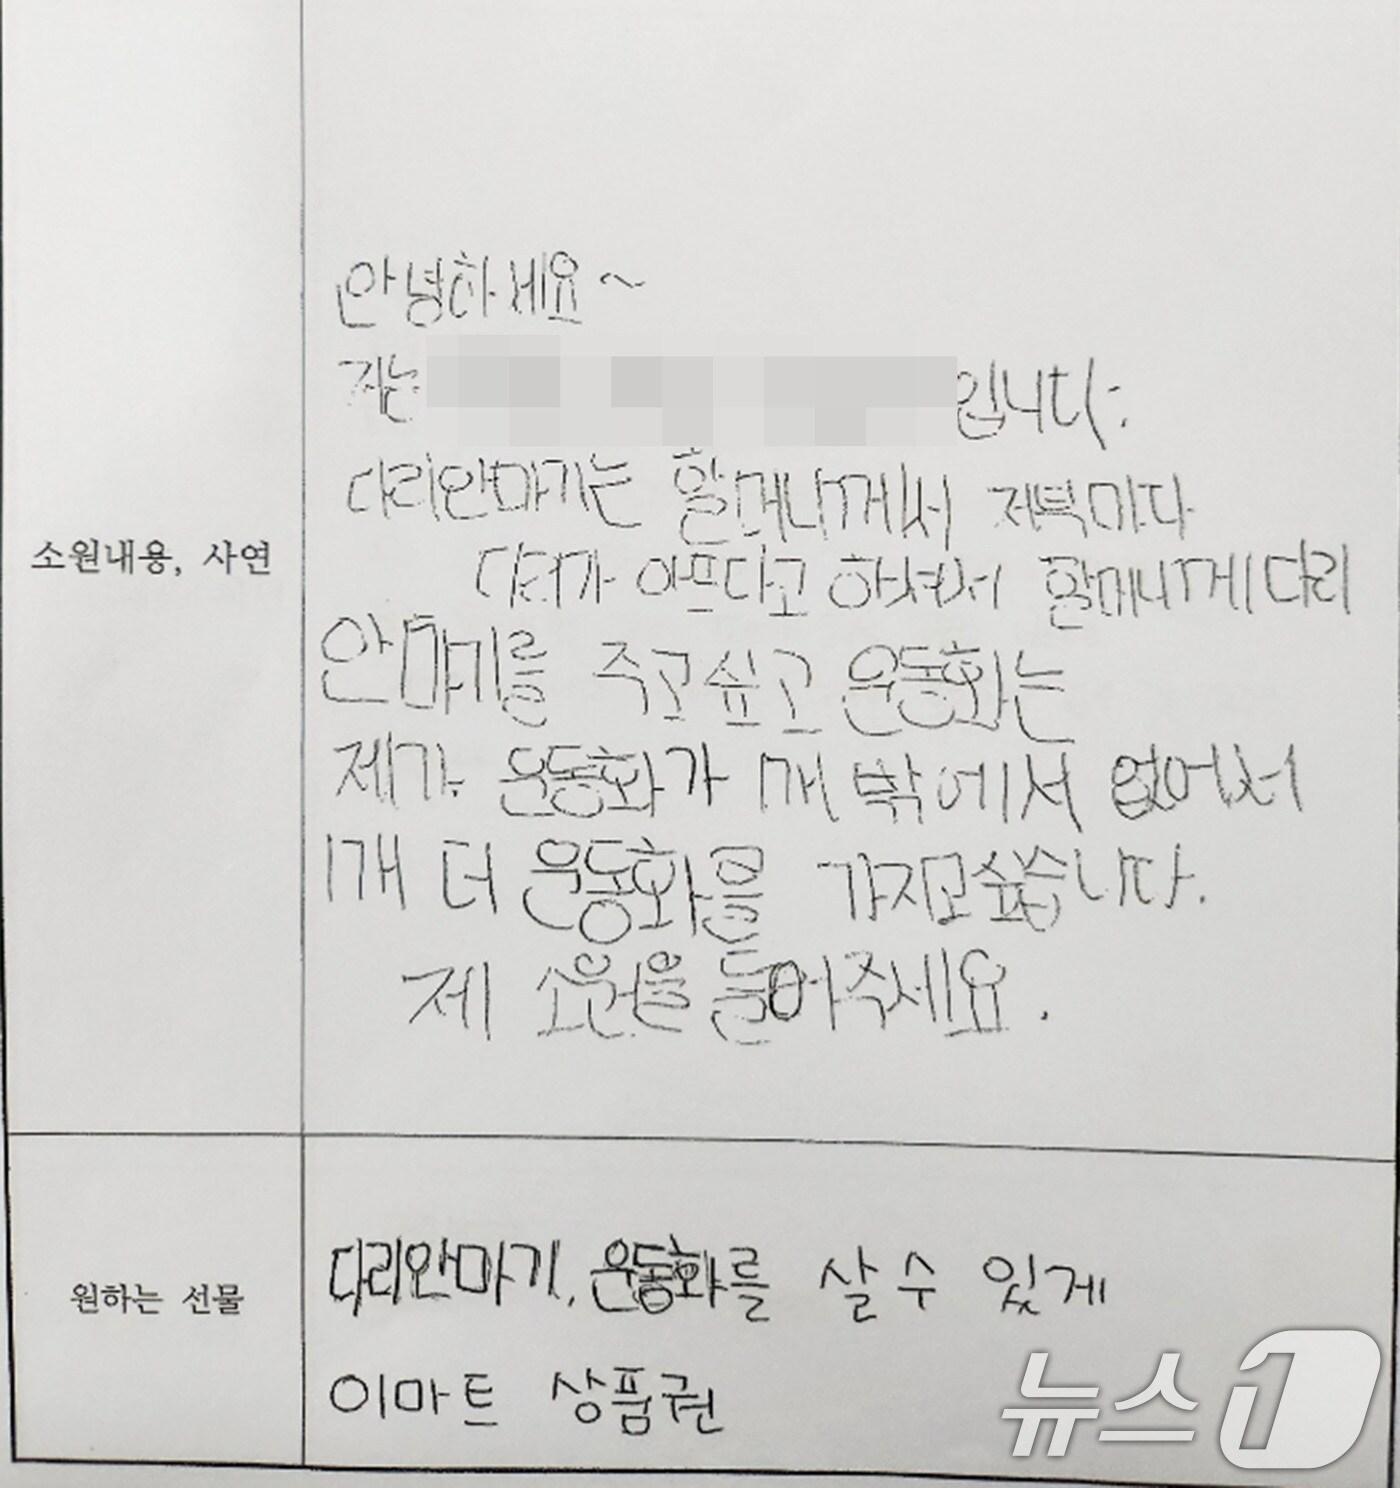 소원내용, 사연
안녕하세요~
저는 입니다.
다리안마기는 할머니께서 저녁마다
다리가 아프다고 하셔서 할머니께 다리
안마기를 주고싶고 운동화는
제가 운동화가 1개 밖에서 없어서
1개 더 운동화를 갸지고싶습니다.
제 소원을 들어주세요.
원하는 선물
다리안마기, 운동화를 살 수 있게
이마트 상품권
뉴스1